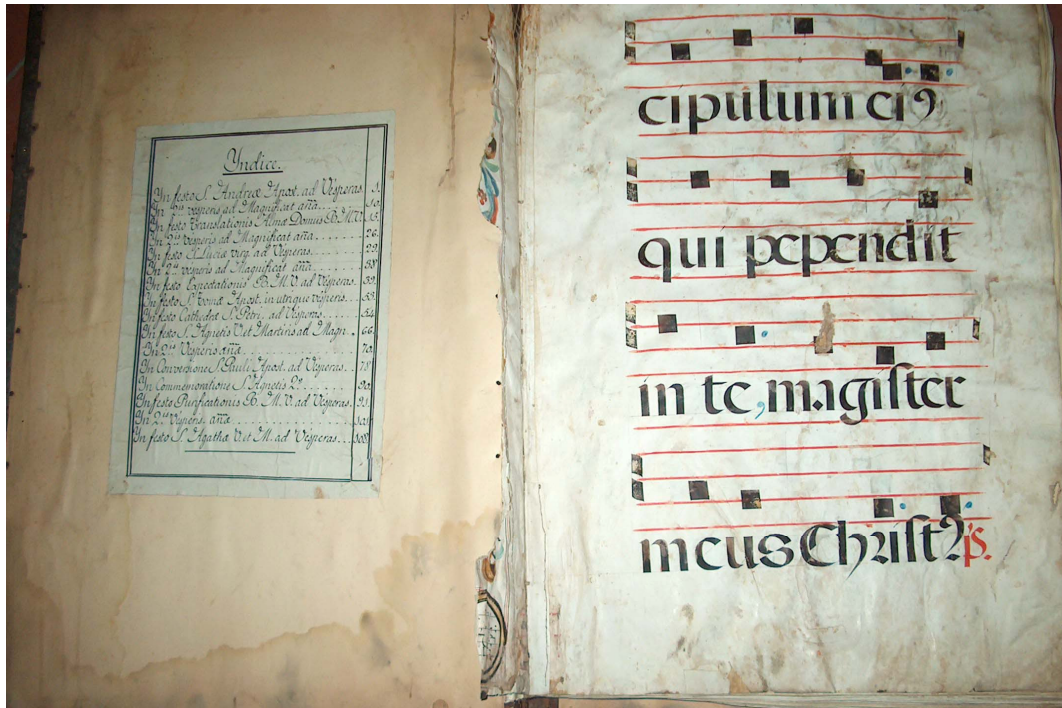 Yndice.
Yn festo S. Andreæ Apost. ad Vesperas. 1.
Yn 2.is vesperis ad Magnificat aña. 10.
Yn festo Translationis Almæ Domus B. M. V. 15.
Yn 2.is Vesperis ad Magnificat aña. 26.
Yn festo S. Luciæ virg. ad Vesperas. 29.
Yn 2.is vesperis ad Magnificat aña. 38
Yn festo Expectationis B. M. V. ad Vesperas. 39.
Yn festo S. Tomæ Apost. in utrique vesperis. 53.
Yn festo Cathedræ S. Petri, ad Vesperas. 54.
Yn festo S. Agnetis V. et Martiris ad Magn. 66.
Yn 2.is Vesperis aña. 70.
Yn Conversione S. Pauli Apost. ad Vesperas. 78
Yn Commemoratione S. Agnetis 2.o 90.
Yn festo Purificationis B. M. V. ad Vesperas. 91.
Yn 2.is Vesperis, aña. 101
Yn festo S. Agathæ V. et M. ad Vesperas. 108.
cipulum ci9
qui pependit
in te, magister
meus Christ9 ps.